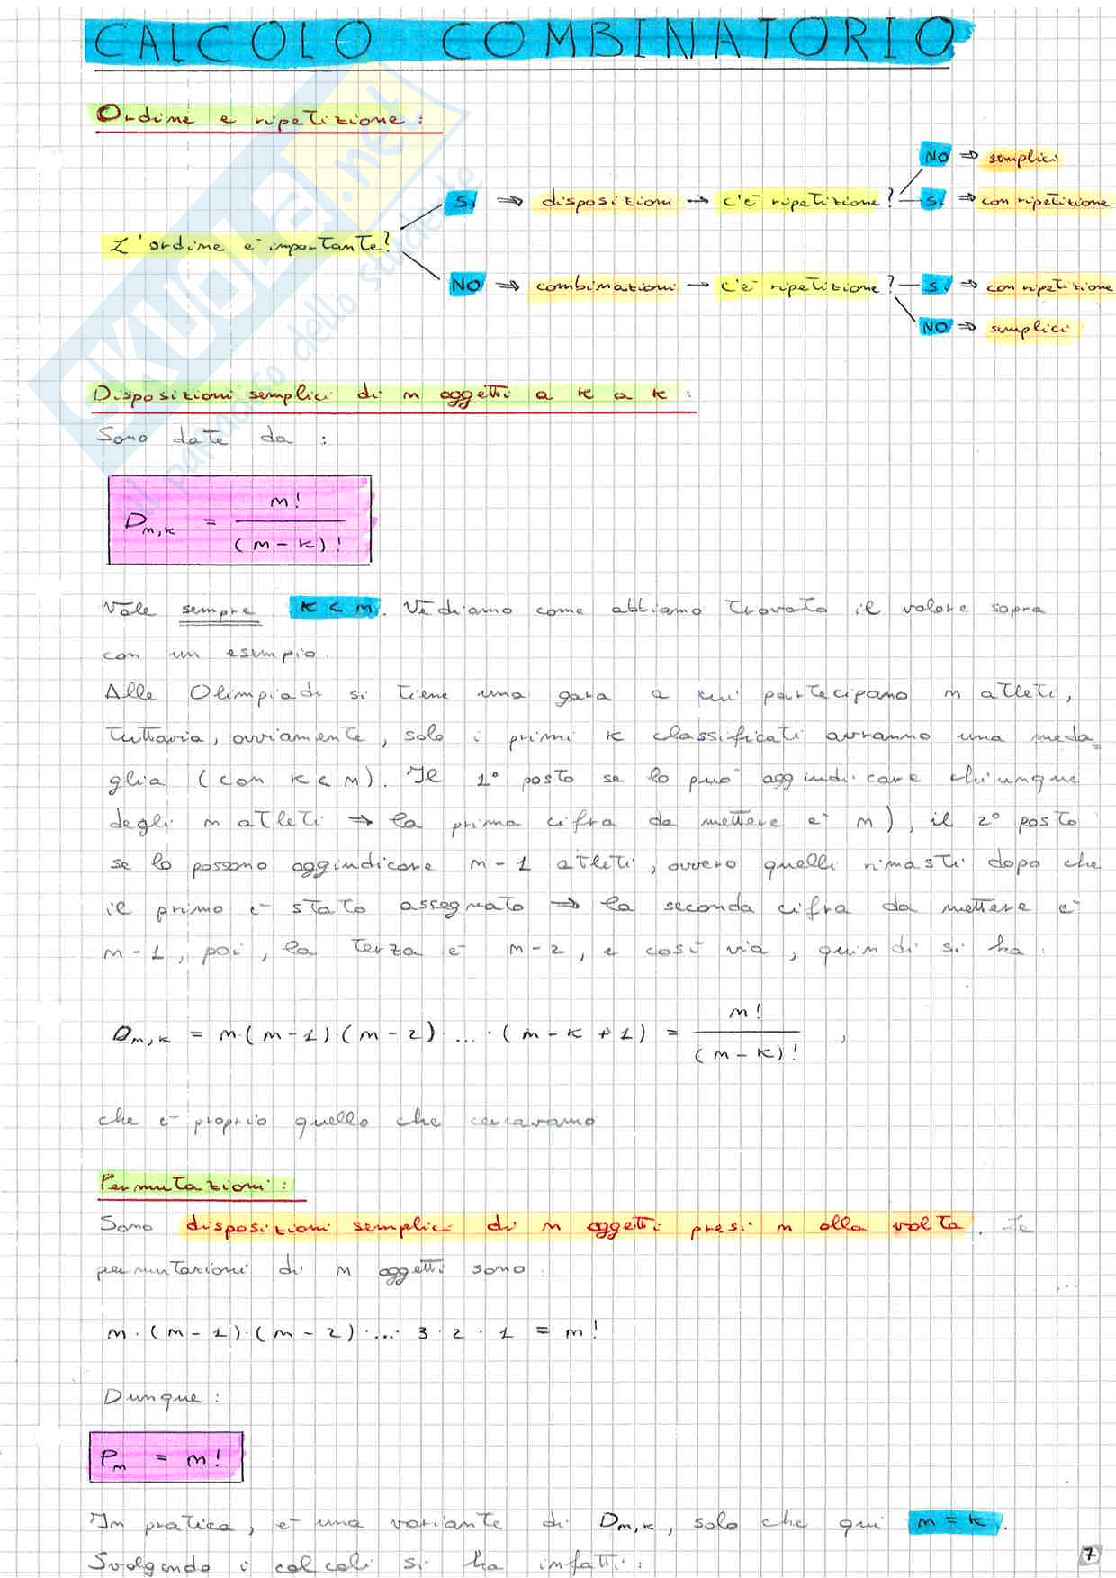 CALCOLO COMBINATORIO
Ordine e ripetizione:
NO ⇒ semplici
Sì ⇒ disposizioni → c'è ripetizione? Sì ⇒ con ripetizione
L'ordine è importante?
NO ⇒ combinazioni → c'è ripetizione? Sì ⇒ con ripetizione
NO ⇒ semplici
Disposizioni semplici di n oggetti a k a k:
Sono date da:
D_{n,k} = n! / (n-k)!
Vale sempre k < n. Vediamo come abbiamo trovato il valore sopra
con un esempio.
Alle Olimpiadi si tiene una gara a cui partecipano n atleti,
tuttavia, ovviamente, solo i primi k classificati avranno una meda-
glia (con k < n). Il 1° posto se lo può aggiudicare chiunque
degli n atleti ⇒ la prima cifra da mettere è n), il 2° posto
se lo possono aggiudicare n-1 atleti, ovvero quelli rimasti dopo che
il primo è stato assegnato ⇒ la seconda cifra da mettere è
n-1, poi, la terza è n-2, e così via, quindi si ha:
D_{n,k} = n·(n-1)(n-2)...·(n-k+1) = n! / (n-k)! ,
che è proprio quello che cercavamo
Permutazioni:
Sono disposizioni semplici di n oggetti presi n alla volta. Le
permutazioni di n oggetti sono:
n·(n-1)·(n-2)·...·3·2·1 = n!
Dunque:
P_n = n!
In pratica, è una variante di D_{n,k}, solo che qui n = k.
Svolgendo i calcoli si ha infatti:
7
SKUOLA.net
il paradiso dello studente